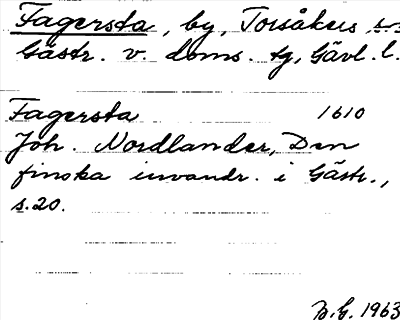 Fagersta, by, Torsåkers s:n
Gästr. v. doms. tg, Gävl. l.
Fagersta 1610
Joh. Nordlander, Den
finska invandr. i Gästr.,
s. 20.
B.G. 1963